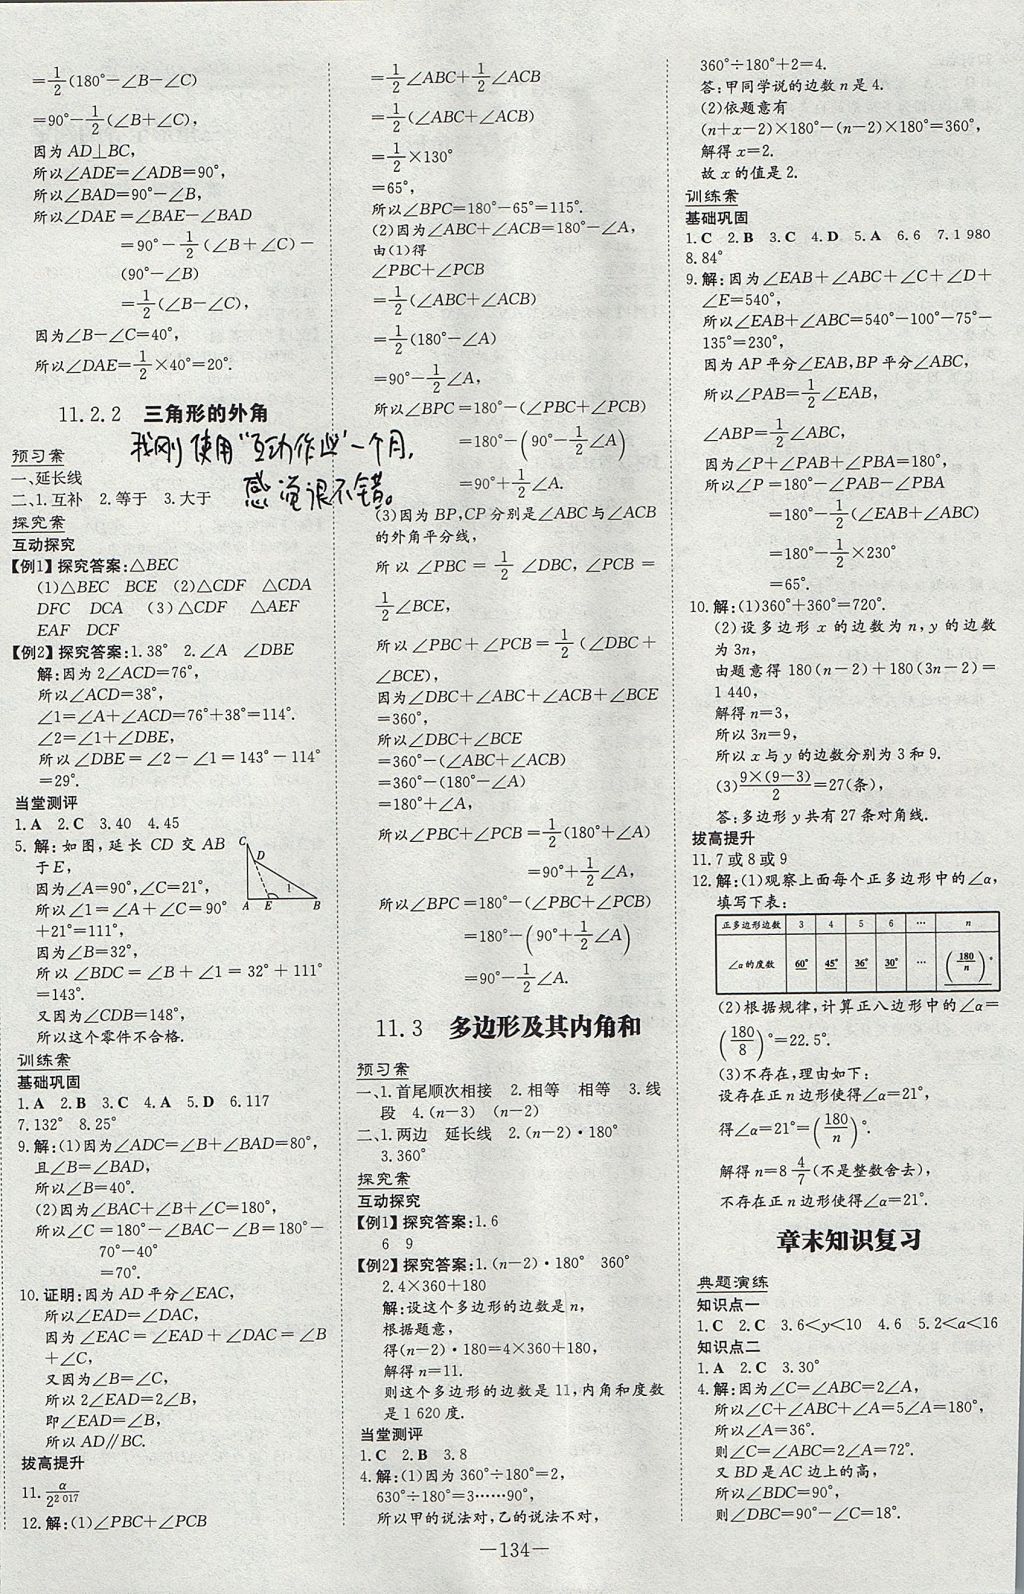 =1/2(180°-∠B-∠C)
=90°-1/2(∠B+∠C),
因为AD⊥BC,
所以∠ADE=∠ADB=90°,
所以∠BAD=90°-∠B,
所以∠DAE=∠BAE-∠BAD
=90°-1/2(∠B+∠C)-
(90°-∠B)
=1/2(∠B-∠C),
因为∠B-∠C=40°,
所以∠DAE=1/2×40°=20°.
11.2.2 三角形的外角
我刚使用“互动作业”一个月,
感觉很不错。
预习案
一、延长线
二、1.互补 2.等于 3.大于
探究案
互动探究
【例1】探究答案:△BEC
(1)△BEC BCE (2)△CDF △CDA
DFC DCA (3)△CDF △AEF
EAF DCF
【例2】探究答案:1.38° 2.∠A ∠DBE
解:因为2∠ACD=76°,
所以∠ACD=38°,
∠1=∠A+∠ACD=76°+38°=114°.
∠2=∠1+∠DBE,
所以∠DBE=∠2-∠1=143°-114°
=29°.
当堂测评
1.A 2.C 3.40 4.45
5.解:如图,延长CD交AB
于E,
因为∠A=90°,∠C=21°,
所以∠1=∠A+∠C=90°
+21°=111°,
因为∠B=32°,
所以∠BDC=∠B+∠1=32°+111°
=143°.
又因为∠CDB=148°,
所以这个零件不合格.
C
D
1
A E B
训练案
基础巩固
1.A 2.B 3.C 4.A 5.D 6.117
7.132° 8.25°
9.解:(1)因为∠ADC=∠B+∠BAD=80°,
且∠B=∠BAD,
所以∠B=40°.
(2)因为∠BAC+∠B+∠C=180°,
所以∠C=180°-∠BAC-∠B=180°-
70°-40°
=70°.
10.证明:因为AD平分∠EAC,
所以∠EAD=∠DAC,
因为∠EAC=∠EAD+∠DAC=∠B
+∠C,
又因为∠B=∠C,
所以2∠EAD=2∠B,
即∠EAD=∠B,
所以AD∥BC.
拔高提升
11.α/2^2 017
12.解:(1)∠PBC+∠PCB
=1/2∠ABC+1/2∠ACB
=1/2(∠ABC+∠ACB)
=1/2×130°
=65°,
所以∠BPC=180°-65°=115°.
(2)因为∠ABC+∠ACB=180°-∠A,
由(1)得
∠PBC+∠PCB
=1/2(∠ABC+∠ACB)
=1/2(180°-∠A)
=90°-1/2∠A,
所以∠BPC=180°-(∠PBC+∠PCB)
=180°-(90°-1/2∠A)
=90°+1/2∠A.
(3)因为BP,CP分别是∠ABC与∠ACB
的外角平分线,
所以∠PBC=1/2∠DBC,∠PCB=
1/2∠BCE,
所以∠PBC+∠PCB=1/2(∠DBC+
∠BCE),
因为∠DBC+∠ABC+∠ACB+∠BCE
=360°,
所以∠DBC+∠BCE
=360°-(∠ABC+∠ACB)
=360°-(180°-∠A)
=180°+∠A,
所以∠PBC+∠PCB=1/2(180°+∠A)
=90°+1/2∠A,
所以∠BPC=180°-(∠PBC+∠PCB)
=180°-(90°+1/2∠A)
=90°-1/2∠A.
11.3 多边形及其内角和
预习案
一、1.首尾顺次相接 2.相等 相等 3.线
段 4.(n-3) (n-2)
二、1.两边 延长线 2.(n-2)·180°
3.360°
探究案
互动探究
【例1】探究答案:1.6
6 9
【例2】探究答案:1.(n-2)·180° 360°
2.4×360+180
解:设这个多边形的边数是n,
根据题意,
得(n-2)·180=4×360+180,
解得n=11.
则这个多边形的边数是11,内角和度数
是1 620度.
当堂测评
1.C 2.B 3.8
4.解:(1)因为360°÷180°=2,
630°÷180°=3……90°,
所以甲的说法对,乙的说法不对,
360°÷180°+2=4.
答:甲同学说的边数n是4.
(2)依题意有
(n+x-2)×180°-(n-2)×180°=360°,
解得x=2.
故x的值是2.
训练案
基础巩固
1.C 2.B 3.C 4.D 5.A 6.6 7.1 980
8.84°
9.解:因为∠EAB+∠ABC+∠C+∠D+
∠E=540°,
所以∠EAB+∠ABC=540°-100°-75°-
135°=230°,
因为AP平分∠EAB,BP平分∠ABC,
所以∠PAB=1/2∠EAB,
∠ABP=1/2∠ABC,
因为∠P+∠PAB+∠PBA=180°,
所以∠P=180°-∠PAB-∠PBA
=180°-1/2(∠EAB+∠ABC)
=180°-1/2×230°
=65°.
10.解:(1)360°+360°=720°.
(2)设多边形x的边数为n,y的边数
为3n,
由题意得180(n-2)+180(3n-2)=
1 440,
解得n=3,
所以3n=9,
所以x与y的边数分别为3和9.
(3)9×(9-3)/2=27(条),
答:多边形y共有27条对角线.
拔高提升
11.7或8或9
12.解:(1)观察上面每个正多边形中的∠α,
填写下表:
正多边形边数 3 4 5 6 … n
∠α的度数 60° 45° 36° 30° … (180/n)°
(2)根据规律,计算正八边形中的∠α=
(180/8)°=22.5°.
(3)不存在,理由如下:
设存在正n边形使得∠α=21°,
得∠α=21°=(180/n)°.
解得n=8 4/7(不是整数舍去),
不存在正n边形使得∠α=21°.
章末知识复习
典题演练
知识点一
1.C 2.C 3.6<y<10 4.6 5.2<a<16
知识点二
1.A 2.C 3.30°
4.解:因为∠C=∠ABC=2∠A,
所以∠C+∠ABC+∠A=5∠A=180°,
所以∠A=36°.
则∠C=∠ABC=2∠A=72°.
又BD是AC边上的高,
所以∠BDC=90°,
则∠DBC=90°-∠C=18°.
—134—